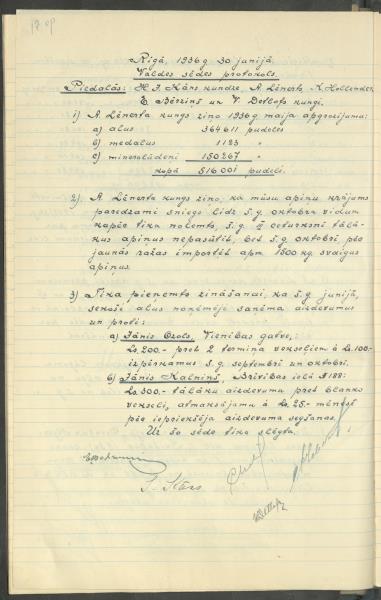 Rīgā, 1936g 30 junijā.
Valdes sēdes protokols.
Piedalās: H. J. Kārs kundze, A. Lēnerts, K. Hollender,
E. Bērziņš un V. Detlofs kungi.
1) A Lēnerta kungs ziņo 1936g maija apgrozijumu:
a) alus 364611 pudeles
b) medalus 1123 "
c) minerālūdeņi 150267 "
kopā 516001 pudeli.
2) A Lēnerta kungs ziņo, ka mūsu apiņu krājums
paredzami sniegs līdz š.g. oktobra vidum
kapēc tika nolemts, š.g. III ceturksnī tālā-
kus apiņus nepasūtīt, bet š.g. oktobrī pēc
jaunās ražas importēt apm 1500 kg. svaigus
apiņus.
3) Tika pieņemts zināšanai, ka š.g. junijā,
sekoši alus noņēmēji saņēma aizdevumus
un proti:
a) Jānis Ozols, Vienības gatve,:
Ls 200.- pret 2 termiņa vekseļiem à Ls. 100.-
izpērkamus š.g. septembrī un oktobrī.
b) Jānis Kalniņš, Brīvības ielā № 188:
Ls. 300.- tālāku aizdevumu pret blanko
vekseli, atmaksājamu à Ls. 25.- mēnesī
pēc iepriekšēja aizdevuma segšanas.
Uz šo sēde tika slēgta.